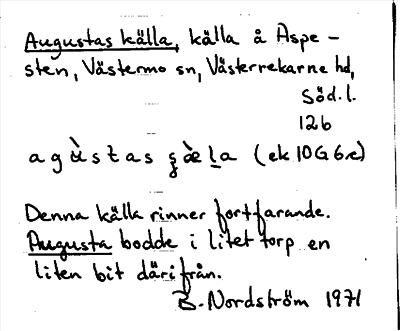 Augustas källa, källa å Aspe-
sten, Västermo sn, Västerrekarne hd,
Söd. l.
12b
agùstas ʂæ̀la (ek 10G6e)
Denna källa rinner fortfarande.
Augusta bodde i litet torp en
liten bit därifrån.
B. Nordström 1971